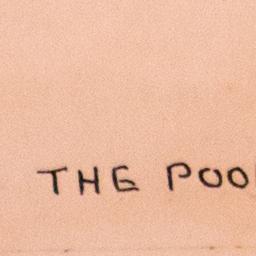 THE POO